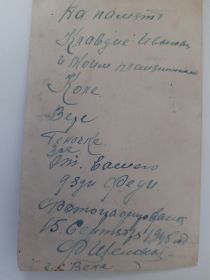 На память
Клавдие Ивановне
и твоим племянникам
Коле
Вере
Геночке
От Вашего
дяди Феди.
Фотографировался
15 Сентября 1945 год
г. Вена